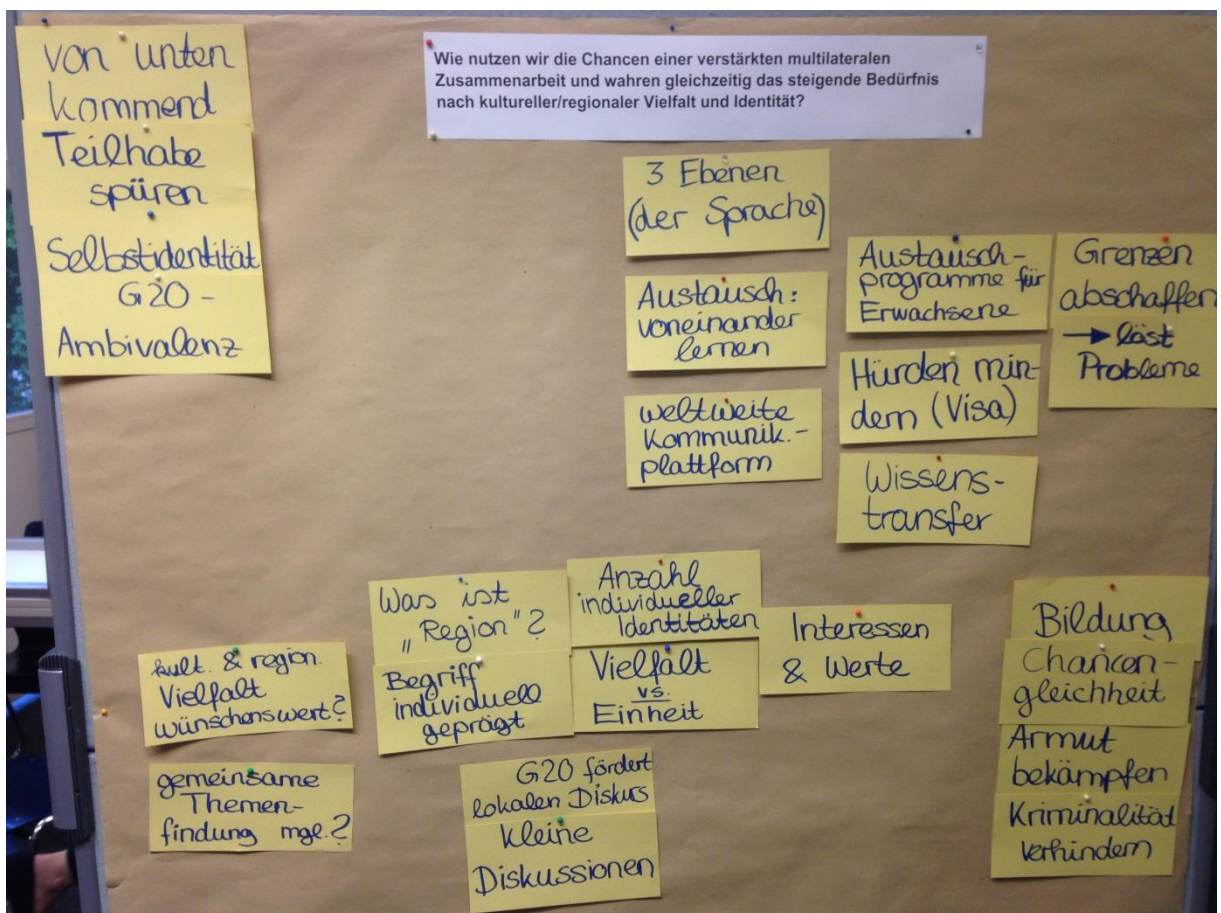 Wie nutzen wir die Chancen einer verstärkten multilateralen
Zusammenarbeit und wahren gleichzeitig das steigende Bedürfnis
nach kultureller/regionaler Vielfalt und Identität?
von unten
kommend
Teilhabe
spüren
Selbstidentität
G20 -
Ambivalenz
3 Ebenen
(der Sprache)
Austausch:
voneinander
lernen
weltweite
Kommunik.-
plattform
Austausch-
programme für
Erwachsene
Hürden min-
dern (Visa)
Wissens-
transfer
Grenzen
abschaffen
→ löst
Probleme
kult. & region.
Vielfalt
wünschenswert?
gemeinsame
Themen-
findung mgl.?
Was ist
„Region"?
Begriff
individuell
geprägt
Anzahl
individueller
Identitäten
Vielfalt
vs.
Einheit
Interessen
& Werte
G20 fördert
lokalen Diskurs
kleine
Diskussionen
Bildung
Chancen-
gleichheit
Armut
bekämpfen
Kriminalität
verhindern